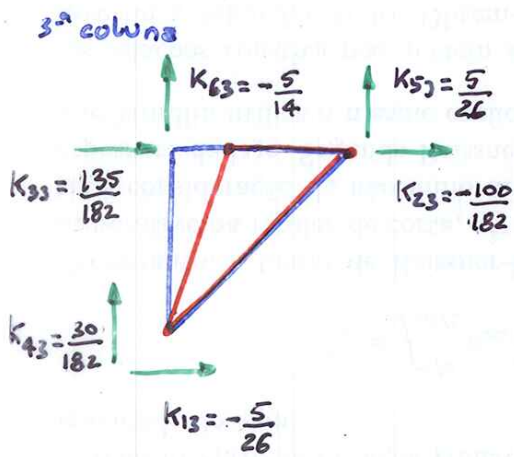 3ª coluna
K63 = -5/14
K53 = 5/26
K33 = 135/182
K23 = -100/182
K43 = 30/182
K13 = -5/26